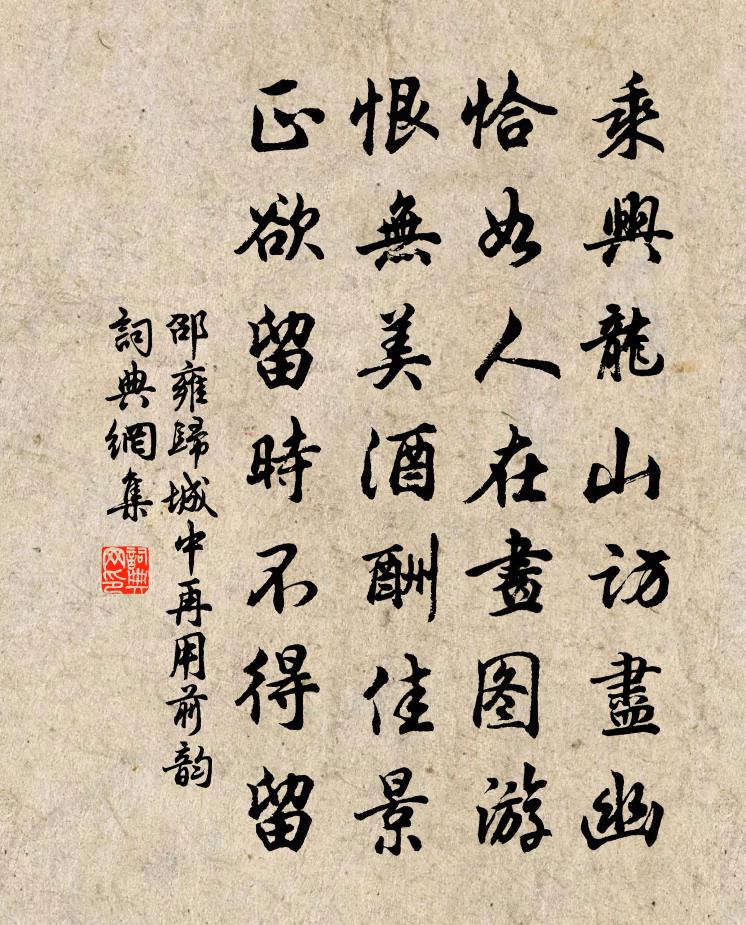 乘興龍山訪盡幽
恰如人在畫图游
恨無美酒酬佳景
正欲留時不得留
邵雍歸城中再用前韵
詞典網集
詞典网印